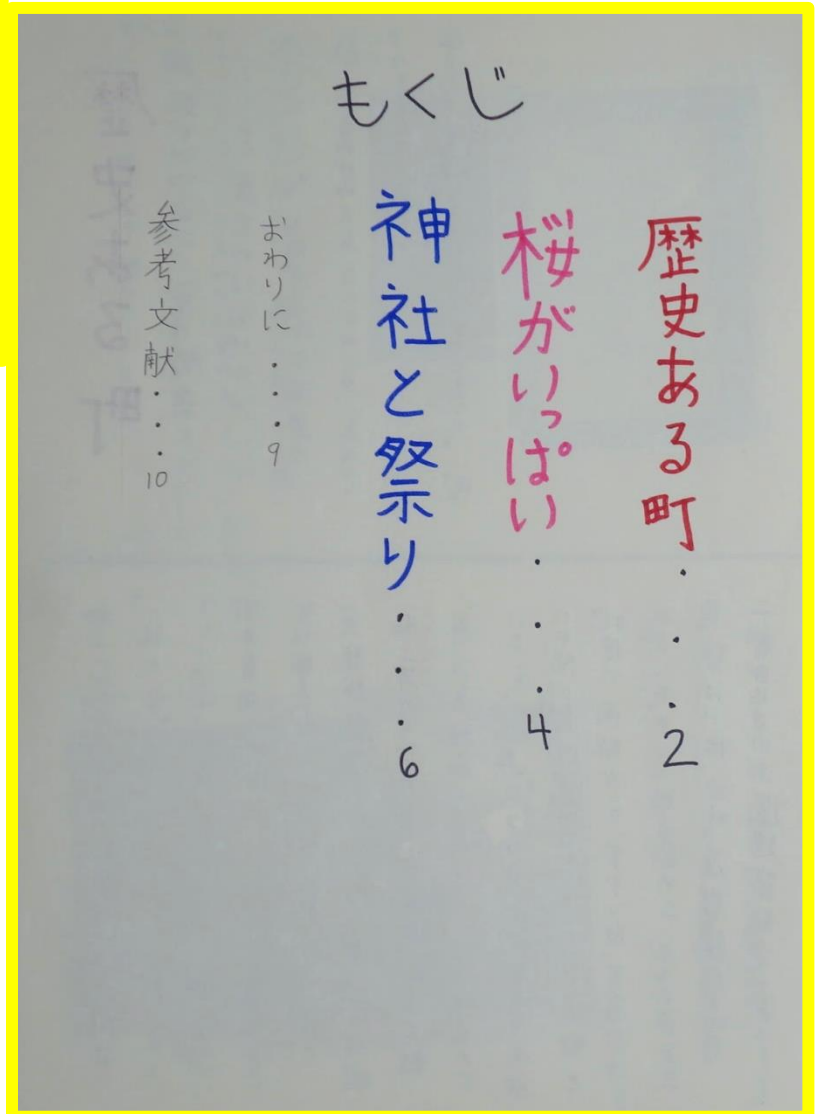 もくじ
歴史ある町・・・2
桜がいっぱい・・・4
神社と祭り・・・6
おわりに・・・9
参考文献・・・10